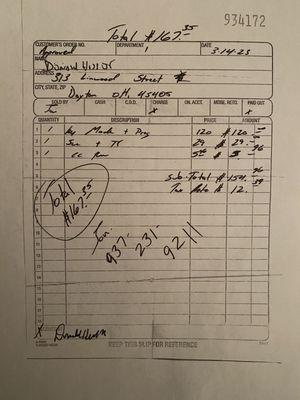 Total $167.35
934172
CUSTOMER'S ORDER NO. DEPARTMENT DATE
Approved 3-14-23
NAME
Donald
ADDRESS
313 Linwood Street
CITY, STATE, ZIP
Dayton OH. 45405
SOLD BY CASH C.O.D. CHARGE ON ACCT. MDSE. RETD. PAID OUT
X X
QUANTITY DESCRIPTION PRICE AMOUNT
1 1 Key Made + Prog 120 $120.
2 1 Svc + TC 29 $29.
3 1 CC Run 5.96 $5.96
4
5 Sub-Total $154.96
6 Tax Rate $12.39
7
8 Total
9 $167.35
10
11 937-
12 231-
13 9211
14
15
16
X Donald
KEEP THIS SLIP FOR REFERENCE